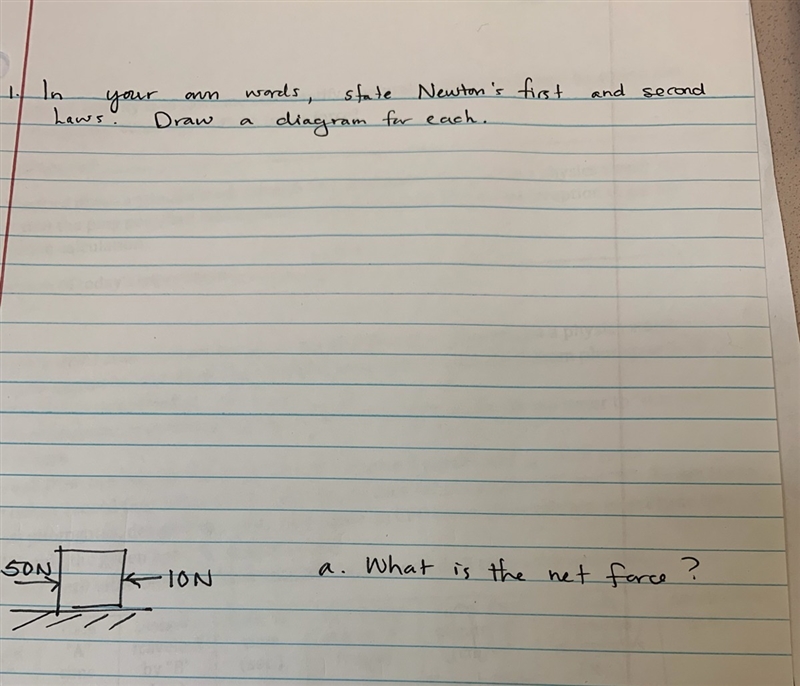 1. In your own words, state Newton's first and second
Laws. Draw a diagram for each.
50N
10N
a. What is the net force?